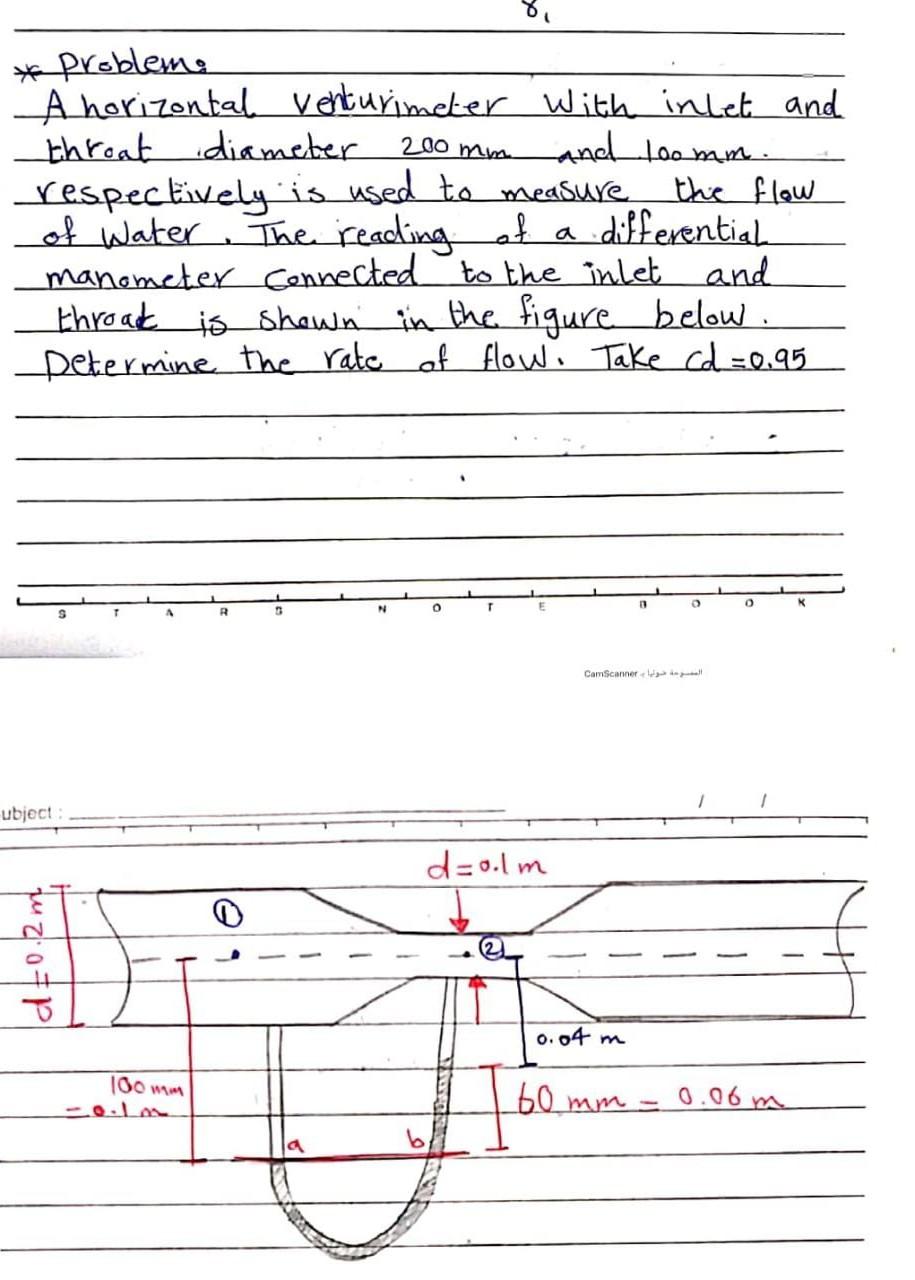 γ₁
* Problem:
A horizontal venturimeter with inlet and
throat diameter 200 mm and 100 mm.
respectively is used to measure the flow
of water. The reading of a differential
manometer connected to the inlet and
throat is shown in the figure below.
Determine the rate of flow. Take Cd = 0.95
S T A R S N O T E B O O K
الممسوحة ضوئيا بـ CamScanner
ubject : / /
d = 0.1 m
d = 0.2 m
①
②
0.04 m
100 mm
= 0.1 m
60 mm = 0.06 m
a b